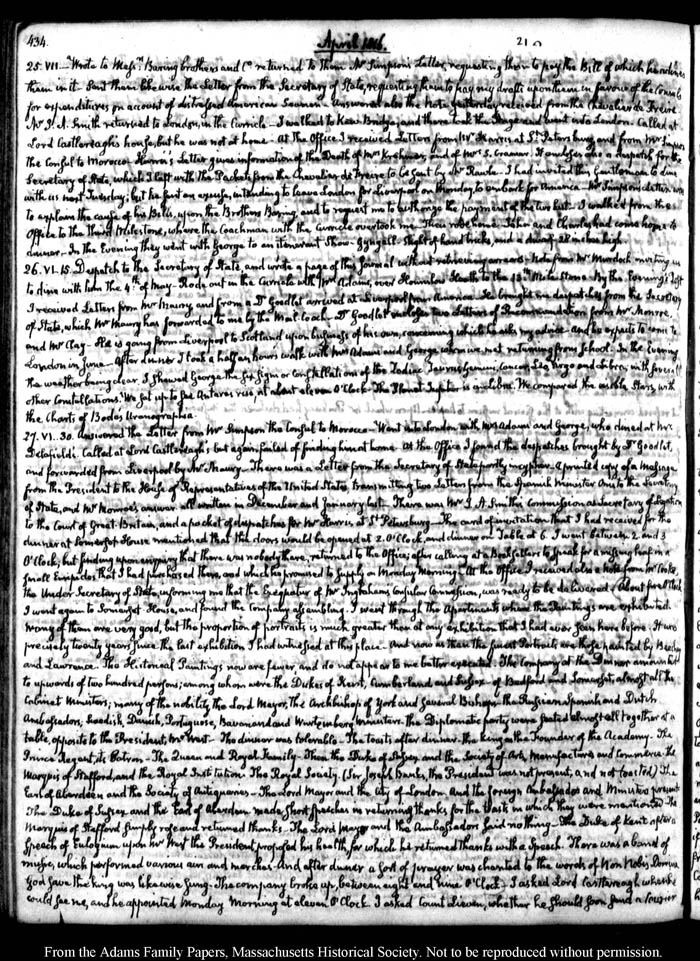 434.
April 1816.
25. VII. Wrote to Messrs. Baring brothers and Co. returned to them Mr Simpson's Letter, requesting them to pay the Bill of which he advises
them in it. Sent them likewise the Letter from the Secretary of State, requesting them to pay my drafts upon them in favour of the Consuls
for expenditures on account of distressed American Seamen. Answered also the Note yesterday received from the Chevalier de Freire
Mr J. A. Smith returned to London, in the Curricle. I walked to Kew Bridge, and there took the Stage and went into London. Called at
Lord Castlereagh's house, but he was not at home. At the Office I received Letters from Mr Harris at St. Petersburg and from Mr Simpson
the Consul to Morocco. Harris's Letter gives information of the Death of Mr Krehmer, and of Mr S. Cramer. It encloses also a dispatch for the
Secretary of State, which I left with the Packets from the Chevalier de Freire to be sent by Mr Rawle. I had invited this Gentleman to dine
with us next Tuesday; but he sent an excuse, intending to leave London for Liverpool on Monday to embark for America. Mr Simpson's letter was
to explain the cause of his Bills upon the Brothers Baring, and to request me to authorize the payment of the two last. I walked from the
Office to the third Milestone, where the Coachman with the Curricle overtook me. Thus rode home. John and Charles had come home to
dinner. In the Evening they went with George to an itinerant Show. Gyngell. Slight of hand tricks, and a dwarf 28 inches high.
26. VI. 15. Despatch to the Secretary of State, and wrote a page of this Journal without retrieving arrears. Note from Mr Murdock inviting us
to dine with him the 4th of May. Rode out in the Curricle with Mrs Adams, over Hounslow Heath to the 13th Mile stone. By the Evening's Post
I received Letters from Mr Maury, and from a Dr Goodlet arrived at Liverpool from America. He brought me despatches from the Secretary
of State, which Mr Maury has forwarded to me by the Mail Coach. Dr Goodlet encloses two Letters of Recommendation from Mr Monroe,
and Mr Clay. He is going from Liverpool to Scotland upon business of his own, concerning which he asks my advice. And he expects to come to
London in June. After dinner I took a half an hour's walk with Mrs Adams and George whom we met returning from School. In the Evening
the weather being clear I shewed George the six signs or Constellations of the Zodiac Taurus Gemini, Cancer, Leo, Virgo and Libra, with several
other Constellations. We sat up to see Antares rise, at about eleven O'Clock. The Planet Jupiter is in Libra. We compared the visible Stars, with
the Charts of Bode's Uranographia.
27. VI. 30. Answered the Letter from Mr Simpson the Consul to Morocco. Went into London with Mrs Adams and George, who dined at Mr
Delafield's. Called at Lord Castlereagh's but again failed of finding him at home. At the Office I found the despatches brought by Dr Goodlet,
and forwarded from Liverpool by Mr Maury. There was a Letter from the Secretary of State partly in cypher. A printed copy of a Message
from the President to the House of Representatives of the United States, transmitting two Letters from the Spanish Minister Onis to the Secretary
of State, and Mr Monroe's answer all written in December and January last. There was Mr J. A. Smith's Commission as Secretary of Legation
to the Court of Great Britain, and a packet of dispatches for Mr Harris at St Petersburg. The card of invitation that I had received for the
dinner at Somerset House mentioned that the doors would be opened at 2. O'Clock, and dinner on Table at 6. I went between 2 and 3
O'Clock, but finding upon enquiry that there was nobody there, returned to the Office; after calling at a Booksellers to speak for a missing leaf in a
small Euripides that I had purchased there, and which he promised to supply on Monday Morning. At the Office I received also a Note from Mr Cooke,
the Under Secretary of State, informing me that the Exequatur of Mr Ingraham's Consular Commission, was ready to be delivered. About five O'Clock
I went again to Somerset House, and found the Company assembling. I went through the Apartments where the Paintings are exhibited.
Many of them are very good, but the proportion of portraits is much greater than at any exhibition that I had ever seen here before. It was
precisely twenty years since the last exhibition I had witnessed at this place. And now as then the finest Portraits are those painted by Beechey
and Lawrence. The Historical Paintings now are fewer and do not appear to me better executed. The Company at the Dinner amounted
to upwards of two hundred persons; among whom were the Dukes of Kent, Cumberland and Sussex, of Bedford and Somerset; almost all the
Cabinet Ministers; many of the nobility, the Lord Mayor, the Archbishop of York and several Bishops. The Russian Spanish and Dutch
Ambassadors, Swedish, Danish, Portuguese, Bavarian and Wurtemberg Ministers. The Diplomatic party were seated almost all together at a
table, opposite to the President, Mr West. The dinner was tolerable. The toasts after dinner. The King as the Founder of the Academy. The
Prince Regent, its Patron. The Queen and Royal Family. Then the Duke of Sussex and the Society of Arts, Manufactures and Commerce. The
Marquis of Stafford, and the Royal Institution. The Royal Society. (Sir Joseph Banks, the President was not present, and not toasted) The
Earl of Aberdeen and the Society of Antiquaries. The Lord Mayor and the City of London. And the foreign Ambassadors and Ministers present
The Duke of Sussex and the Earl of Aberdeen made short speeches in returning thanks for the toast in which they were mentioned. The
Marquis of Stafford simply rose and returned thanks. The Lord Mayor and the Ambassadors said nothing. The Duke of Kent after a
speech of Eulogium upon Mr West the President proposed his health, for which he returned thanks with a speech. There was a band of
music, which performed various airs and marches. And after dinner a sort of prayer was chanted to the words of Non Nobis, Domine
God save the King was likewise sung. The company broke up, between eight and nine O'Clock. I asked Lord Castlereagh when he
would see me, and he appointed Monday Morning at eleven O'Clock. I asked Count Lieven, whether he should soon send a Courier
From the Adams Family Papers, Massachusetts Historical Society. Not to be reproduced without permission.